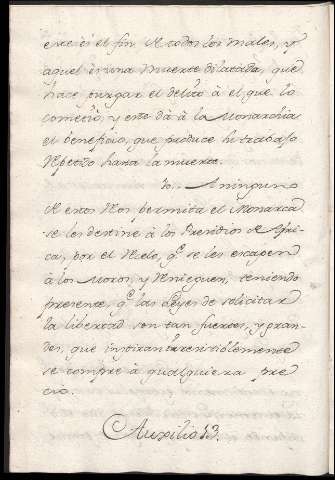 este es el fin de todos los males, y
aquel es una muerte dilatada, que
hace purgar el delito à el que lo
cometió, y esto dà à la Monarchia
el beneficio, que produce su trabajo
hasta la muerte.
30. A ninguno
de estos Reos permita el Monarca
se les destine à los Presidios de Afri-
ca, por el rezelo, q.e se les escapen
à los Moros, y renieguen, teniendo
presente, q.e las Leyes de solicitar
la libertad son tan fuertes, y gran-
des, que inspiran irresistiblemente
se compre à qualquiera pre
cio.
Auxilio 13.